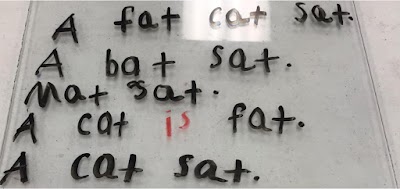 A fat cat sat.
A bat sat.
Mat sat.
A cat is fat.
A cat sat.